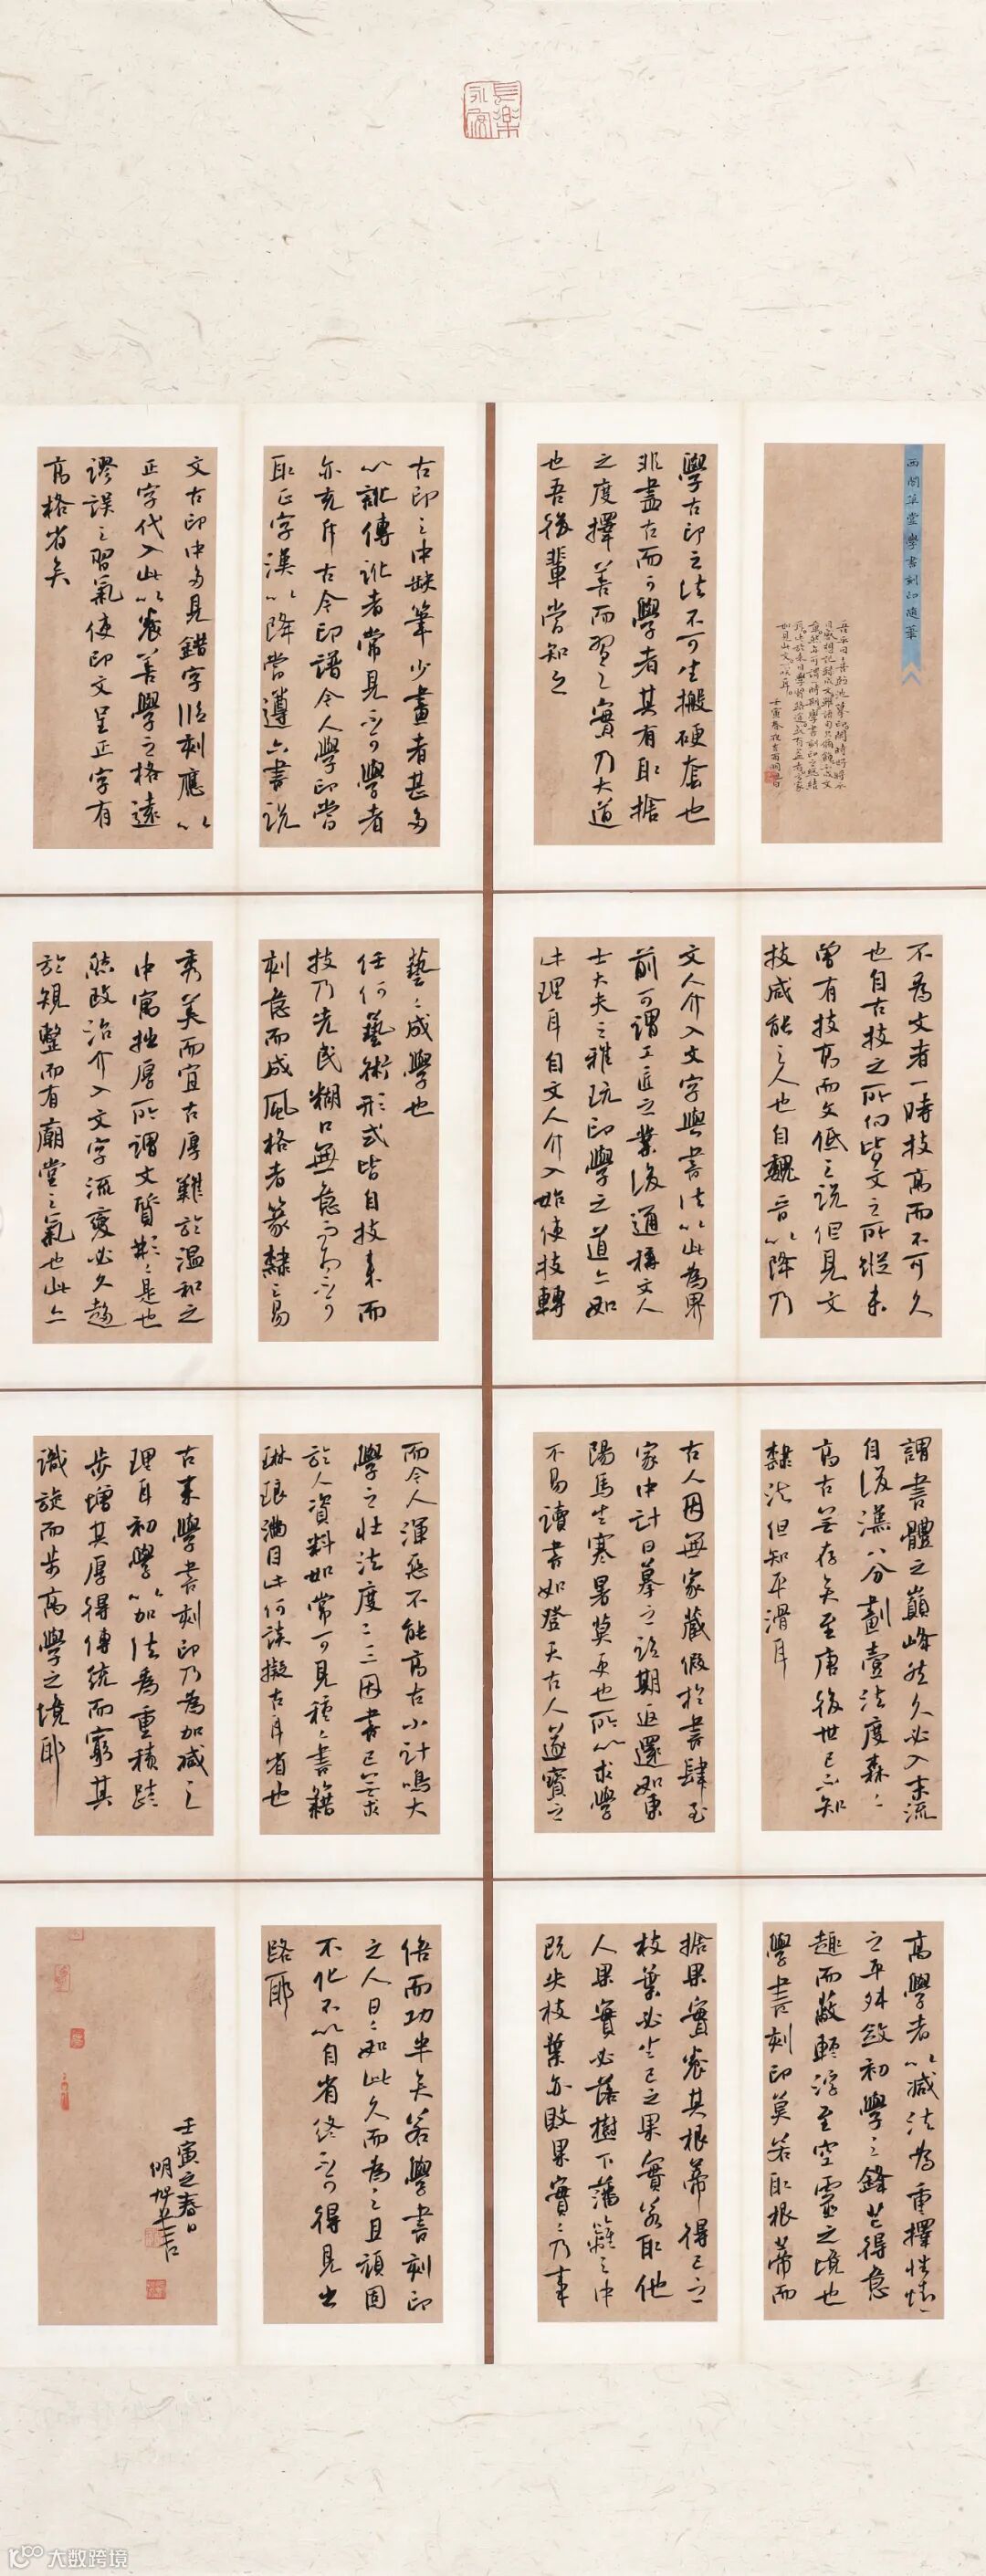 長樂
西閣草堂學書刻印隨筆
學古印之法不可生搬硬套也
非盡古而可學者其有取捨
之度擇善而習之實乃大道
也吾後輩當知之
古印之中缺筆少畫者甚多
以訛傳訛者常見不可學者
亦充斥古今印譜今人學印當
取正字漢以降當遵六書說
文古印中多見錯字臨刻應以
正字代入此以養善學之格遠
謬誤之習氣使印文呈正字有
高格省矣
不為文者一時技高而不可久
也自古技之所向皆文之所蹤未
曾有技高而文低之說但見文
技咸能之人也自魏晉以降乃
文人介入文字與書法以此為界
前可謂工匠之業後通稱文人
士大夫之雅玩印學之道亦如
此理耳自文人介入始使技轉
藝藝成學也
任何藝術形式皆自技來而
技乃先民糊口無意而為不可
刻意而成風格者篆隸之易
秀美而宜古厚難於溫和之
中寓拙厚所謂文質彬彬是也
然政治介入文字流變必久趨
於規整而有廟堂之氣也此亦
謂書體之巔峰然久必入末流
自後漢八分劃壹法度森森
高古無存矣至唐後世已不知
隸法但知平滑耳
古人因無家藏假於書肆至
家中計日摹之詔期返還如東
陽馬生寒暑莫更也所以求學
不易讀書如登天古人遂寶之
而今人渾惡不能高古小計鳴大
學之壯法度二三因書已無求
於人資料如常可見種種書籍
琳琅滿目此何談擬古耳省也
古來學書刻印乃為加減之
理耳初學以加法為重積跬
步增其厚得傳統而窮其
識旋而步高學之境耶
高學者以減法為重擇性情
之平斂初學之鋒芒得意
趣而蔽輕浮至空靈之境也
學書刻印莫若取根蒂而
捨果實養其根蒂得己之
枝葉必生己之果實若取他
人果實必落樹下藩籬之中
既失枝葉亦敗果實之乃事
倍而功半矣若學書刻印
之人日日如此久而為之且頑固
不化不以自省終不可得見出
路耶
壬寅之春日
大数跨境